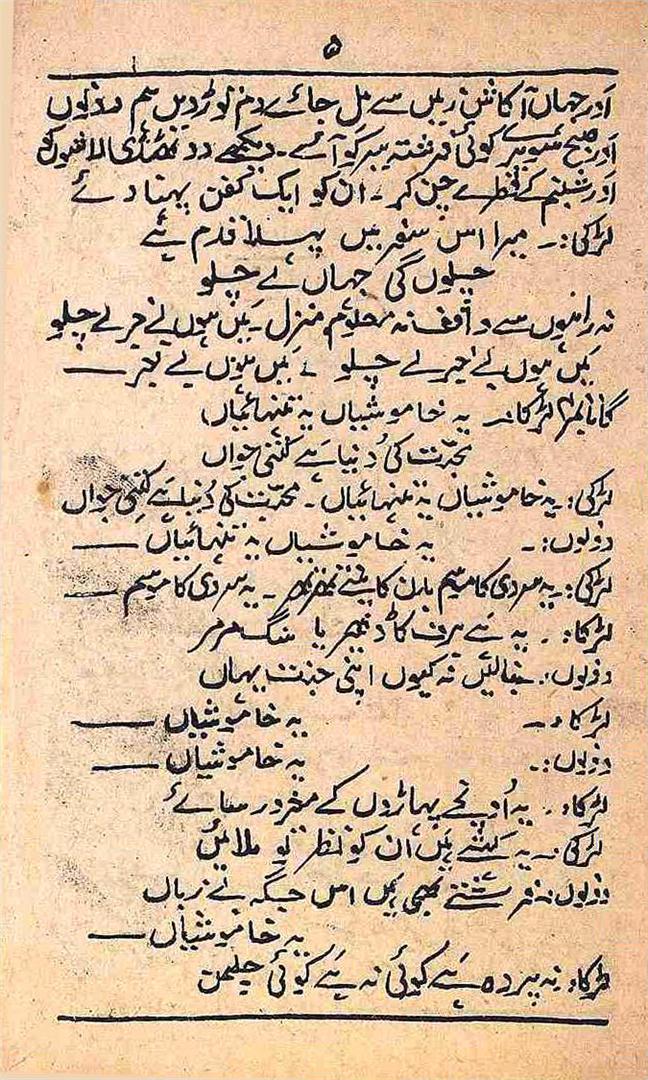 ۵
اور جہاں آکاش زمیں سے مل جائے دم توڑ دیں ہم دونوں
اور صبح سویرے کوئی فرشتہ سیر کو آئے ۔ دیکھے دو ٹھنڈی لاشوں کو
اور شبنم کے قطرے چن کر ۔ ان کو ایک کفن پہنا دے
لڑکی :۔ میرا اس سفر میں پہلا قدم ہے
چلوں گی جہاں لے چلو
نہ راہوں سے واقف نہ معلوم منزل ۔ میں ہوں بے خبر لے چلو
میں ہوں بے خبر لے چلو ، میں ہوں بے خبر ــــ
گانا نمبر لڑکا :۔ یہ خاموشیاں یہ تنہائیاں
محبّت کی دُنیا ہے کتنی جواں
لڑکی :۔ یہ خاموشیاں یہ تنہائیاں ۔ محبّت کی دُنیا ہے کتنی جواں
دونوں :۔ یہ خاموشیاں یہ تنہائیاں ــــ
لڑکی :۔ یہ سردی کا موسم بدن کانپے تھر تھر ۔ یہ سردی کا موسم ــــ
لڑکا :۔ یہ ہے برف کا ڈھیر یا سنگ مرمر
دونوں :۔ بنالیں نہ کیوں اپنی جنت یہاں
لڑکا :۔ یہ خاموشیاں ــــ
دونوں :۔ یہ خاموشیاں ــــ
لڑکا :۔ یہ اُونچے پہاڑوں کے مغرور سائے
لڑکی :۔ یہ کہتے ہیں ان کو نظر تو ملائیں
دونوں :۔ فرشتے بھی ہیں اس جگہ بے زباں
یہ خاموشیاں ــــ
لڑکا :۔ نہ پردہ ہے کوئی نہ ہے کوئی چلمن